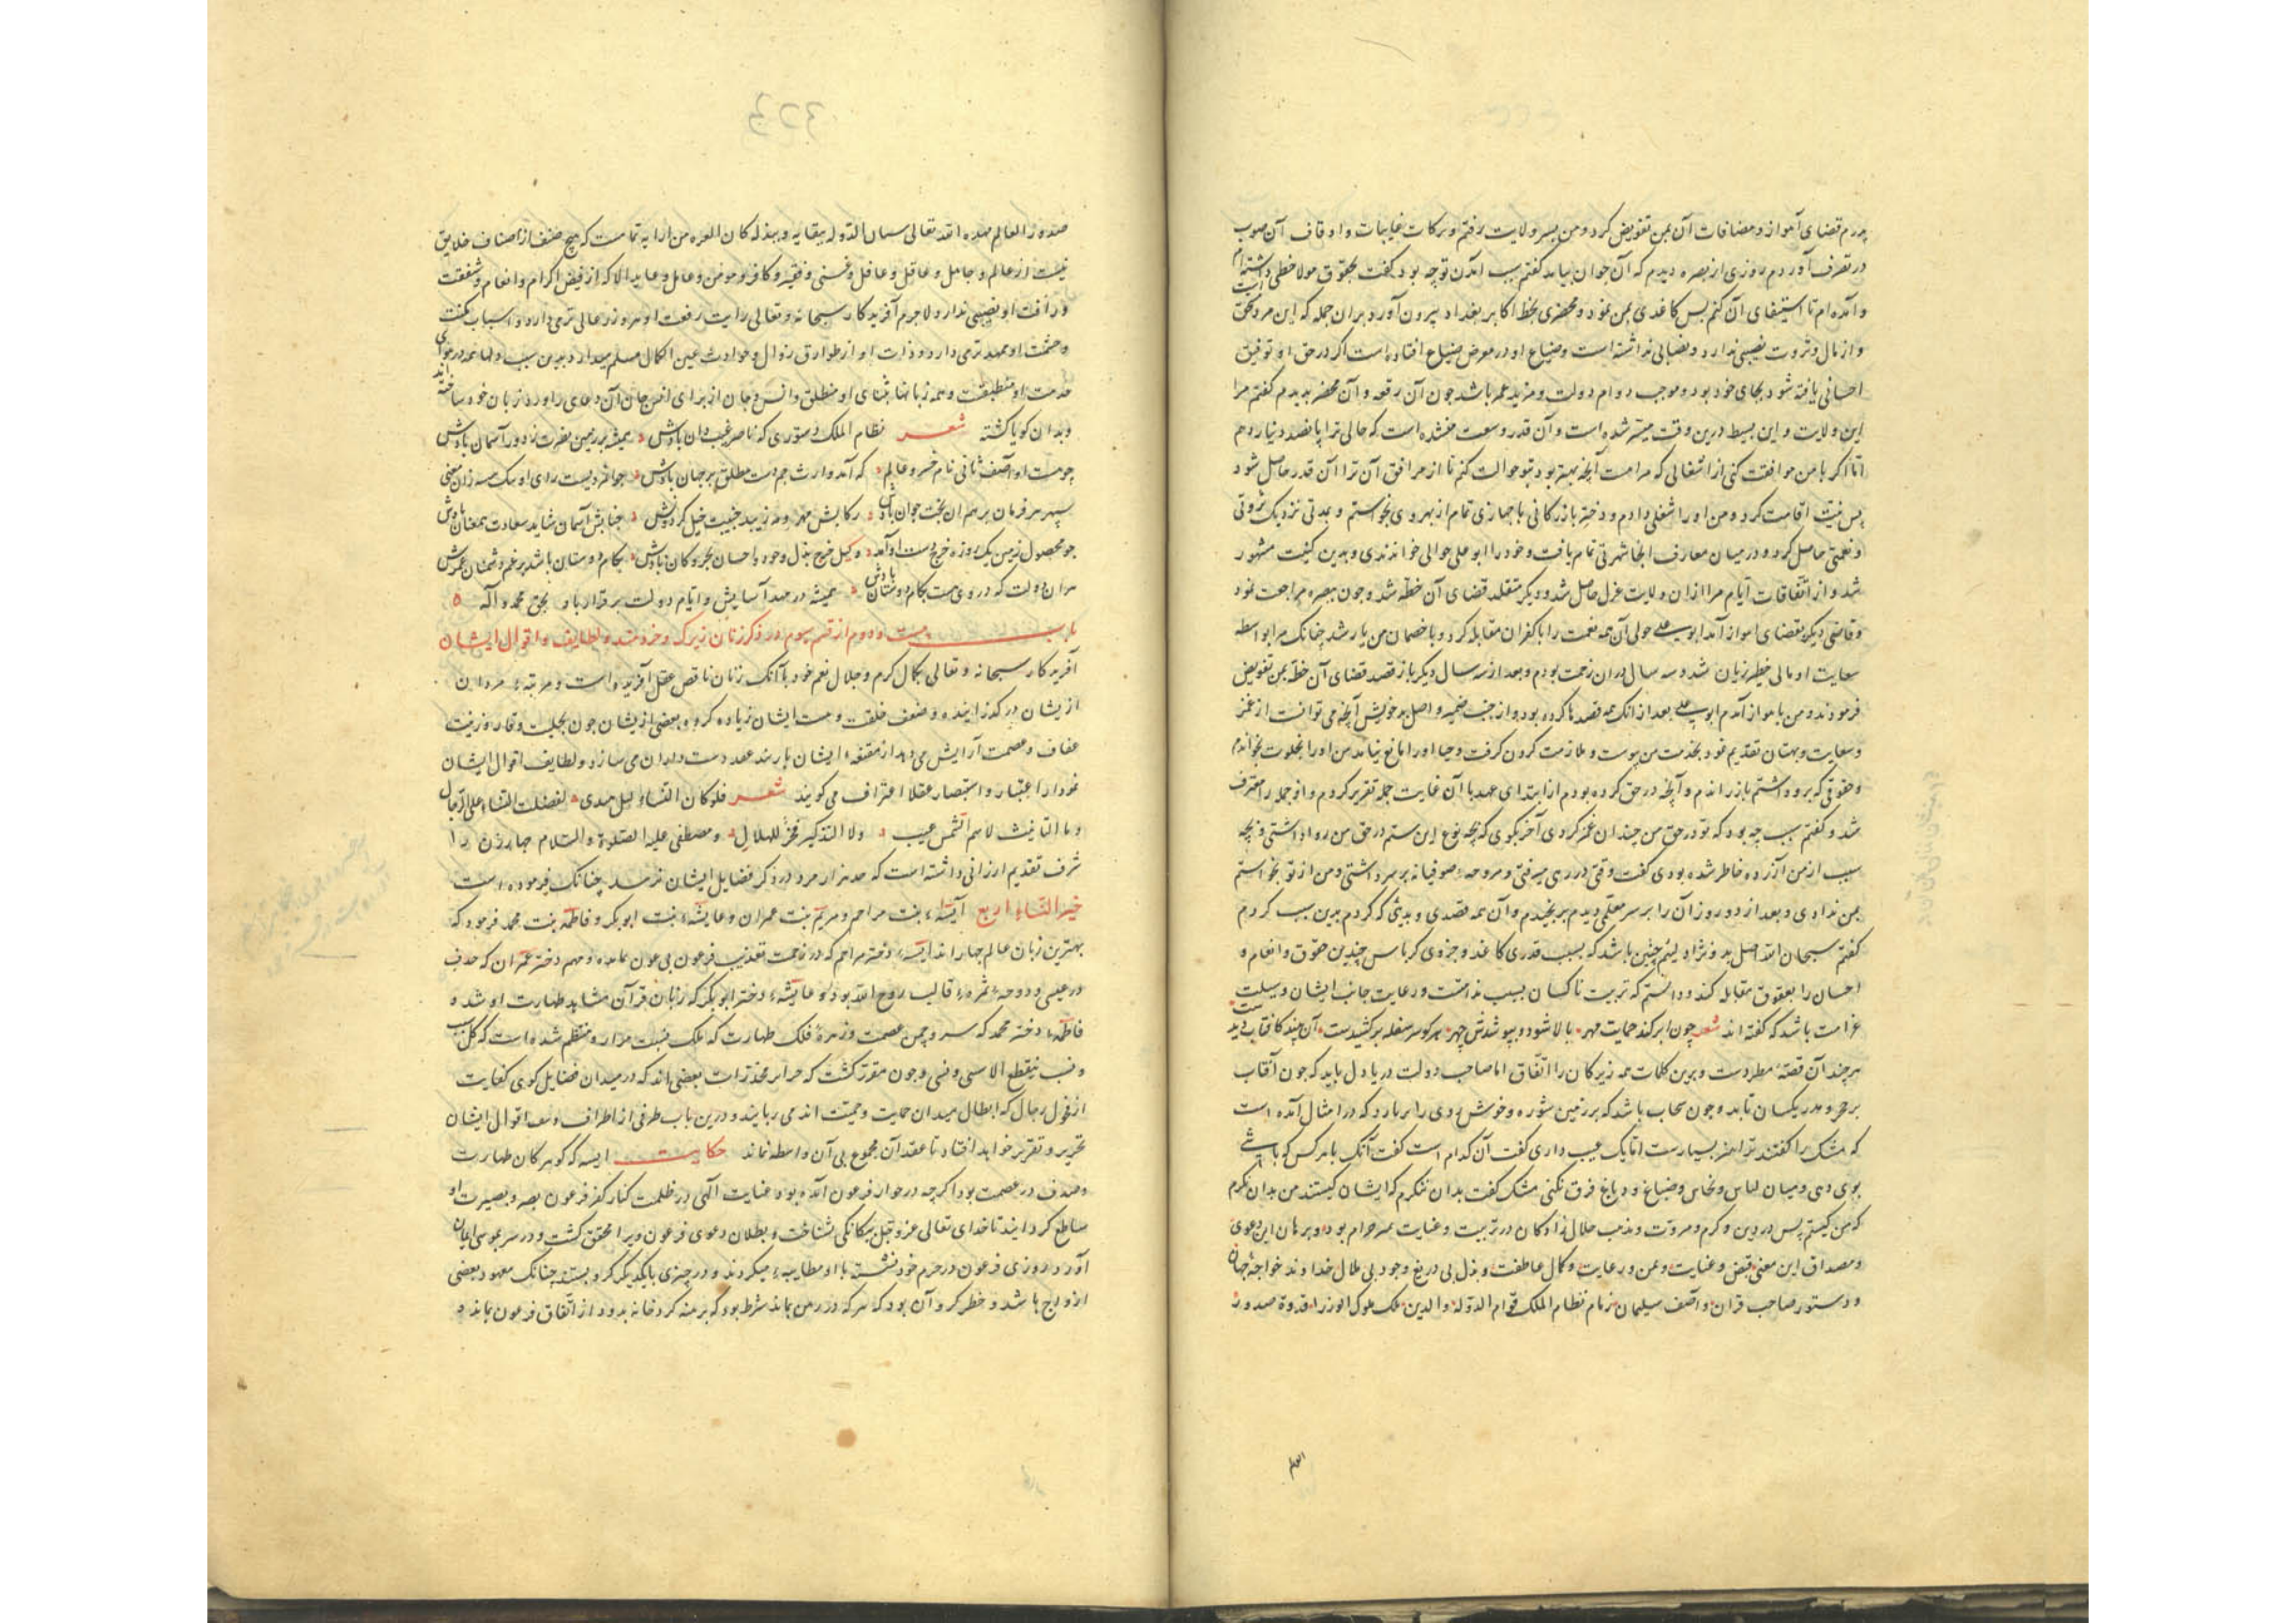 پدرم قضای اهواز و مضافات آن بمن تفویض کرد و من بسر ولایت رفتم و برکات غایبات و اوقاف آن صوب
در تصرف آوردم روزی از بصره دیدم که آن جوان بیامد گفتم سبب آمدن تو چه بود گفت بحقوق مولا خطی داشته‌ام
و آمده‌ام تا استیفای آن کنم بس کاغذی بمن نمود و محضری بخط اکابر بغداد بیرون آورد بران جمله که این مرد مستحق است
و از مال و ثروت نصیبی ندارد و نصابی نداشته است و ضیاع او در معرض ضیاع افتاده است اگر در حق او توفیق
احسانی یافته شود بجای خود بود و موجب دوام دولت و مزید عمر باشد جون آن رقعه و آن محضر بدیدم گفتم مرا
این ولایت و این بسیط درین وقت میسر شده است و آن قدر وسعت نشده است که حالی ترا پانصد دینار دهم
اما اگر با من موافقت کنی از اشغالی که مراست آنچه بهتر بود بتو حوالت کنم تا از مرافق آن ترا آن قدر حاصل شود
پس نیت اقامت کرد و من او را شغلی دادم و دختر بازرکانی با جهازی تمام از بهر وی بخواستم و بمدتی نزدیک ثروتی
و نعمتی حاصل کرد و در میان معارف آنجا شهرتی تمام یافت و خود را ابو علی حوالی خواندندی و بدین کنیت مشهور
شد و از اتفاقات ایام مرا ازان ولایت عزل حاصل شد و دیگر متقلد قضای آن خطه شد و جون ببصره مراجعت نمود
و قاضی دیگر بقضای اهواز آمد ابو علی حولی آن همه نعمت را باکفران مقابله کرد و با خصمان من یار شد چنانک مرا بواسطه
سعایت او مالی خطیر زیان شد و سه سال دران زحمت بودم و بعد از سه سال دیگر باز قصد قضای آن خطه بمن تفویض
فرمودند و من باهواز آمدم ابو علی بعد از انک همه قصدها کرده بود و از خبث ضمیر و اصل بد خویش آنچه می توانست از غمز
و سعایت و بهتان تقدیم نمود بخدمت من پیوست و ملازمت کردن گرفت و حیا او را مانع نیامد من او را بخلوت بخواندم
و حقوقی که برو داشتم بازراندم و آنچه در حق کرده بودم از ابتدای عهد با آن غایت جمله تقریر کردم و او جمله را معترف
شد و گفتم سبب چه بود که تو در حق من چندان غمز کردی آخر بگوی که بچه نوع این ستم در حق من روا داشتی و بچه
سبب از من آزرده خاطر شده بودی گفت وقتی در ری میرفتی و مروحهٔ صوفیانه بر سر داشتی و من از تو بخواستم
بمن ندادی و بعد از دو روز آن را بر سر معلمی دیدم برنجیدم و آن همه قصدی و بدی که کردم بدین سبب کردم
گفتم سبحان الله اصل بد و نژاد لئیم چنین باشد که بسبب قدری کاغذ و جزوی کرباس چندین حقوق و انعام و
احسان را بعقوق مقابله کند و دانستم که تربیت ناکسان بسبب ندامت و رعایت جانب ایشان وسیلت
غرامت باشد که گفته اند شعر چون ابر کند حمایت مهر بالا شود و بپوشدش چهر هر کو سر سفله بر کشیدست آن بیند کافتاب دیدست
هر چند آن قصه مطردست و برین کلمات همه زیرکان را اتفاق اما صاحب دولت دریا دل باید که جون آفتاب
بر حجر و مدر یکسان تابد و جون سحاب باشد که بر زمین شوره و خوش روی را بربارد که در امثال آمده است
که مشک را گفتند ترا هنر بسیارست اما یک عیب داری گفت آن کدام است گفت آنک با هر کس که باشی
بوی دهی و میان لباس و نخاس و صباغ و دباغ فرق نکنی مشک گفت بدان ننگرم که ایشان کیستند من بدان نگرم
که من کیستم پس در دین و کرم و مروت و مذهب حلال زادگان در تربیت و عنایت همه حرام بود و برهان این دعوی
و مصداق این معنی فیض و عنایت و یمن و رعایت و کمال عاطفت و بذل بی دریغ و جود بی ملال خداوند خواجهٔ جهان
و دستور صاحب قران و آصف سلیمان زمام نظام الملک قوام الدوله والدین ملک ملوک الوزرا قدوة صدور
العالم
صدور العالم مده الله تعالی سمان الدوله ببقایه و بذله کان المعزه من ارایه تمامست که هیچ صنف از اصناف خلایق
نیست از عالم و جاهل و عاقل و غافل و غنی و فقیر و کافر و مومن و عامل و عابد الا که از فیض اکرام و انعام و شفقت
و رأفت او نصیبی ندارد لاجرم آفریدکار سبحانه و تعالی رایت رفعت او هر روز عالی تر می دارد و اسباب مکنت
و حشمت او ممهد تر می دارد و ذات او از طوارق زوال و حوادث عین الکمال مسلم میدارد بدین سبب دلها همه در هوای
خدمت او منطبقست و همه زبانها بثنای او منطلق و انس و جان از برای انس جان آن دعای را ورد زبان خود ساخته اند
و بدان گویا کشته شعر نظام الملک دستوری که ناصر غیب دان بادش همیشه بر زمین نصرت ز دور آسمان بادش
چو هست او آصف ثانی نام خسرو عالم که آمد وارث جم دست مطلق بر جهان بادش جوانمردیست رای او سبک همه زان معنی
سپهر مر فرمان بر همر ان بخت جوان بادش رکابش مهر و مه زیبد جنیبت خیل گردونش جنابش آسمان شاید سعادت همعنان بادش
جو محصول زمین یک روزه خرج دست او آمد وکیل خرج بذل وجود و احسان بحر و کان بادش بکام دوستان باشد برغم دشمنان عمرش
مران دولت که در وی هست بکام دوستان بادش همیشه در مهد آسایش و ایام دولت برقرار باد بحق محمد و آله
باب بیست و دوم از قسم سیوم در ذکر زنان زیرک و خردمند و لطایف و اقوال ایشان
آفریدکار سبحانه و تعالی بکمال کرم و جلال نعم خود با آنک زنان ناقص عقل آفریده است و مرتبهٔ مردان
از یشان در گذرانیده و ضعف خلقت و هست ایشان زیاده کرده و بعضی از یشان جون بحلیت وقار و زینت
عفاف و عصمت آرایش می دهد از مقنعهٔ ایشان بار بند عهد دست دلیران می سازد و لطایف اقوال ایشان
نمودار اعتبار و استبصار عقلا اعتراف می گویند شعر فلو کان النساء لمثل هذی لفضلت النساء علی الرجال
و ما التانیث لاسم الشمس عیب ولا التذکیر فخر للهلال و مصطفی علیه الصلوة والسلام جهار زن را
شرف تقدیم ارزانی داشته است که صد هزار مرد در ذکر فضایل ایشان نرسد چنانک فرموده است
خیر النساء اربع آسیهٔ بنت مزاحم و مریم بنت عمران و عایشهٔ بنت ابوبکر و فاطمه بنت محمد فرمود که
بهترین زنان عالم جهار اند آسیهٔ دختر مزاحم که در زحمت تعذیب فرعون بی عون بمانده و مریم دختر عمران که صدف
در عیسی و دوحهٔ ثمرهٔ قالب روح الله بود و عایشهٔ دختر ابوبکر که زبان قرآن مشاهد طهارت او شد و
فاطمهٔ دختر محمد که سرو چمن عصمت و زهرهٔ فلک طهارت که ملک نسبت مرا رو منتظم شده است که کل سبب
و نسب ینقطع الا سببی و نسبی و جون مقرر گشت که حرایر مخدرات بعضی اند که در میدان فضایل گوی کفایت
از فحول رجال که ابطال میدان حمایت و حمیت اند می ربایند و درین باب طرفی از اطراف وصف اقوال ایشان
تحریر و تقریر خواهد افتاد تا عقد آن مجموع بی آن واسطه نماند حکایت آسیه که گوهر کان طهارت
و صدف در عصمت بود اگرچه در جوار فرعون آمده بود عنایت الهی در ظلمت کنار کفر فرعون بصر و بصیرت او
ساطع گردانید تا خدای تعالی عز و جل بیگانگی بشناخت و بطلان دعوی فرعون ویرا محقق گشت و در سر بموسی ایمان
آورد و روزی فرعون در حرم خود نشسته با او مطایبه میکردند و در چیزی با یکدیگر گرو بستند چنانک معهود بعضی
ازواج باشد و خطر گرو آن بود که هر که در رهن بماند شرط بود که برهنه گرد خانه بدود از اتفاق فرعون بماند